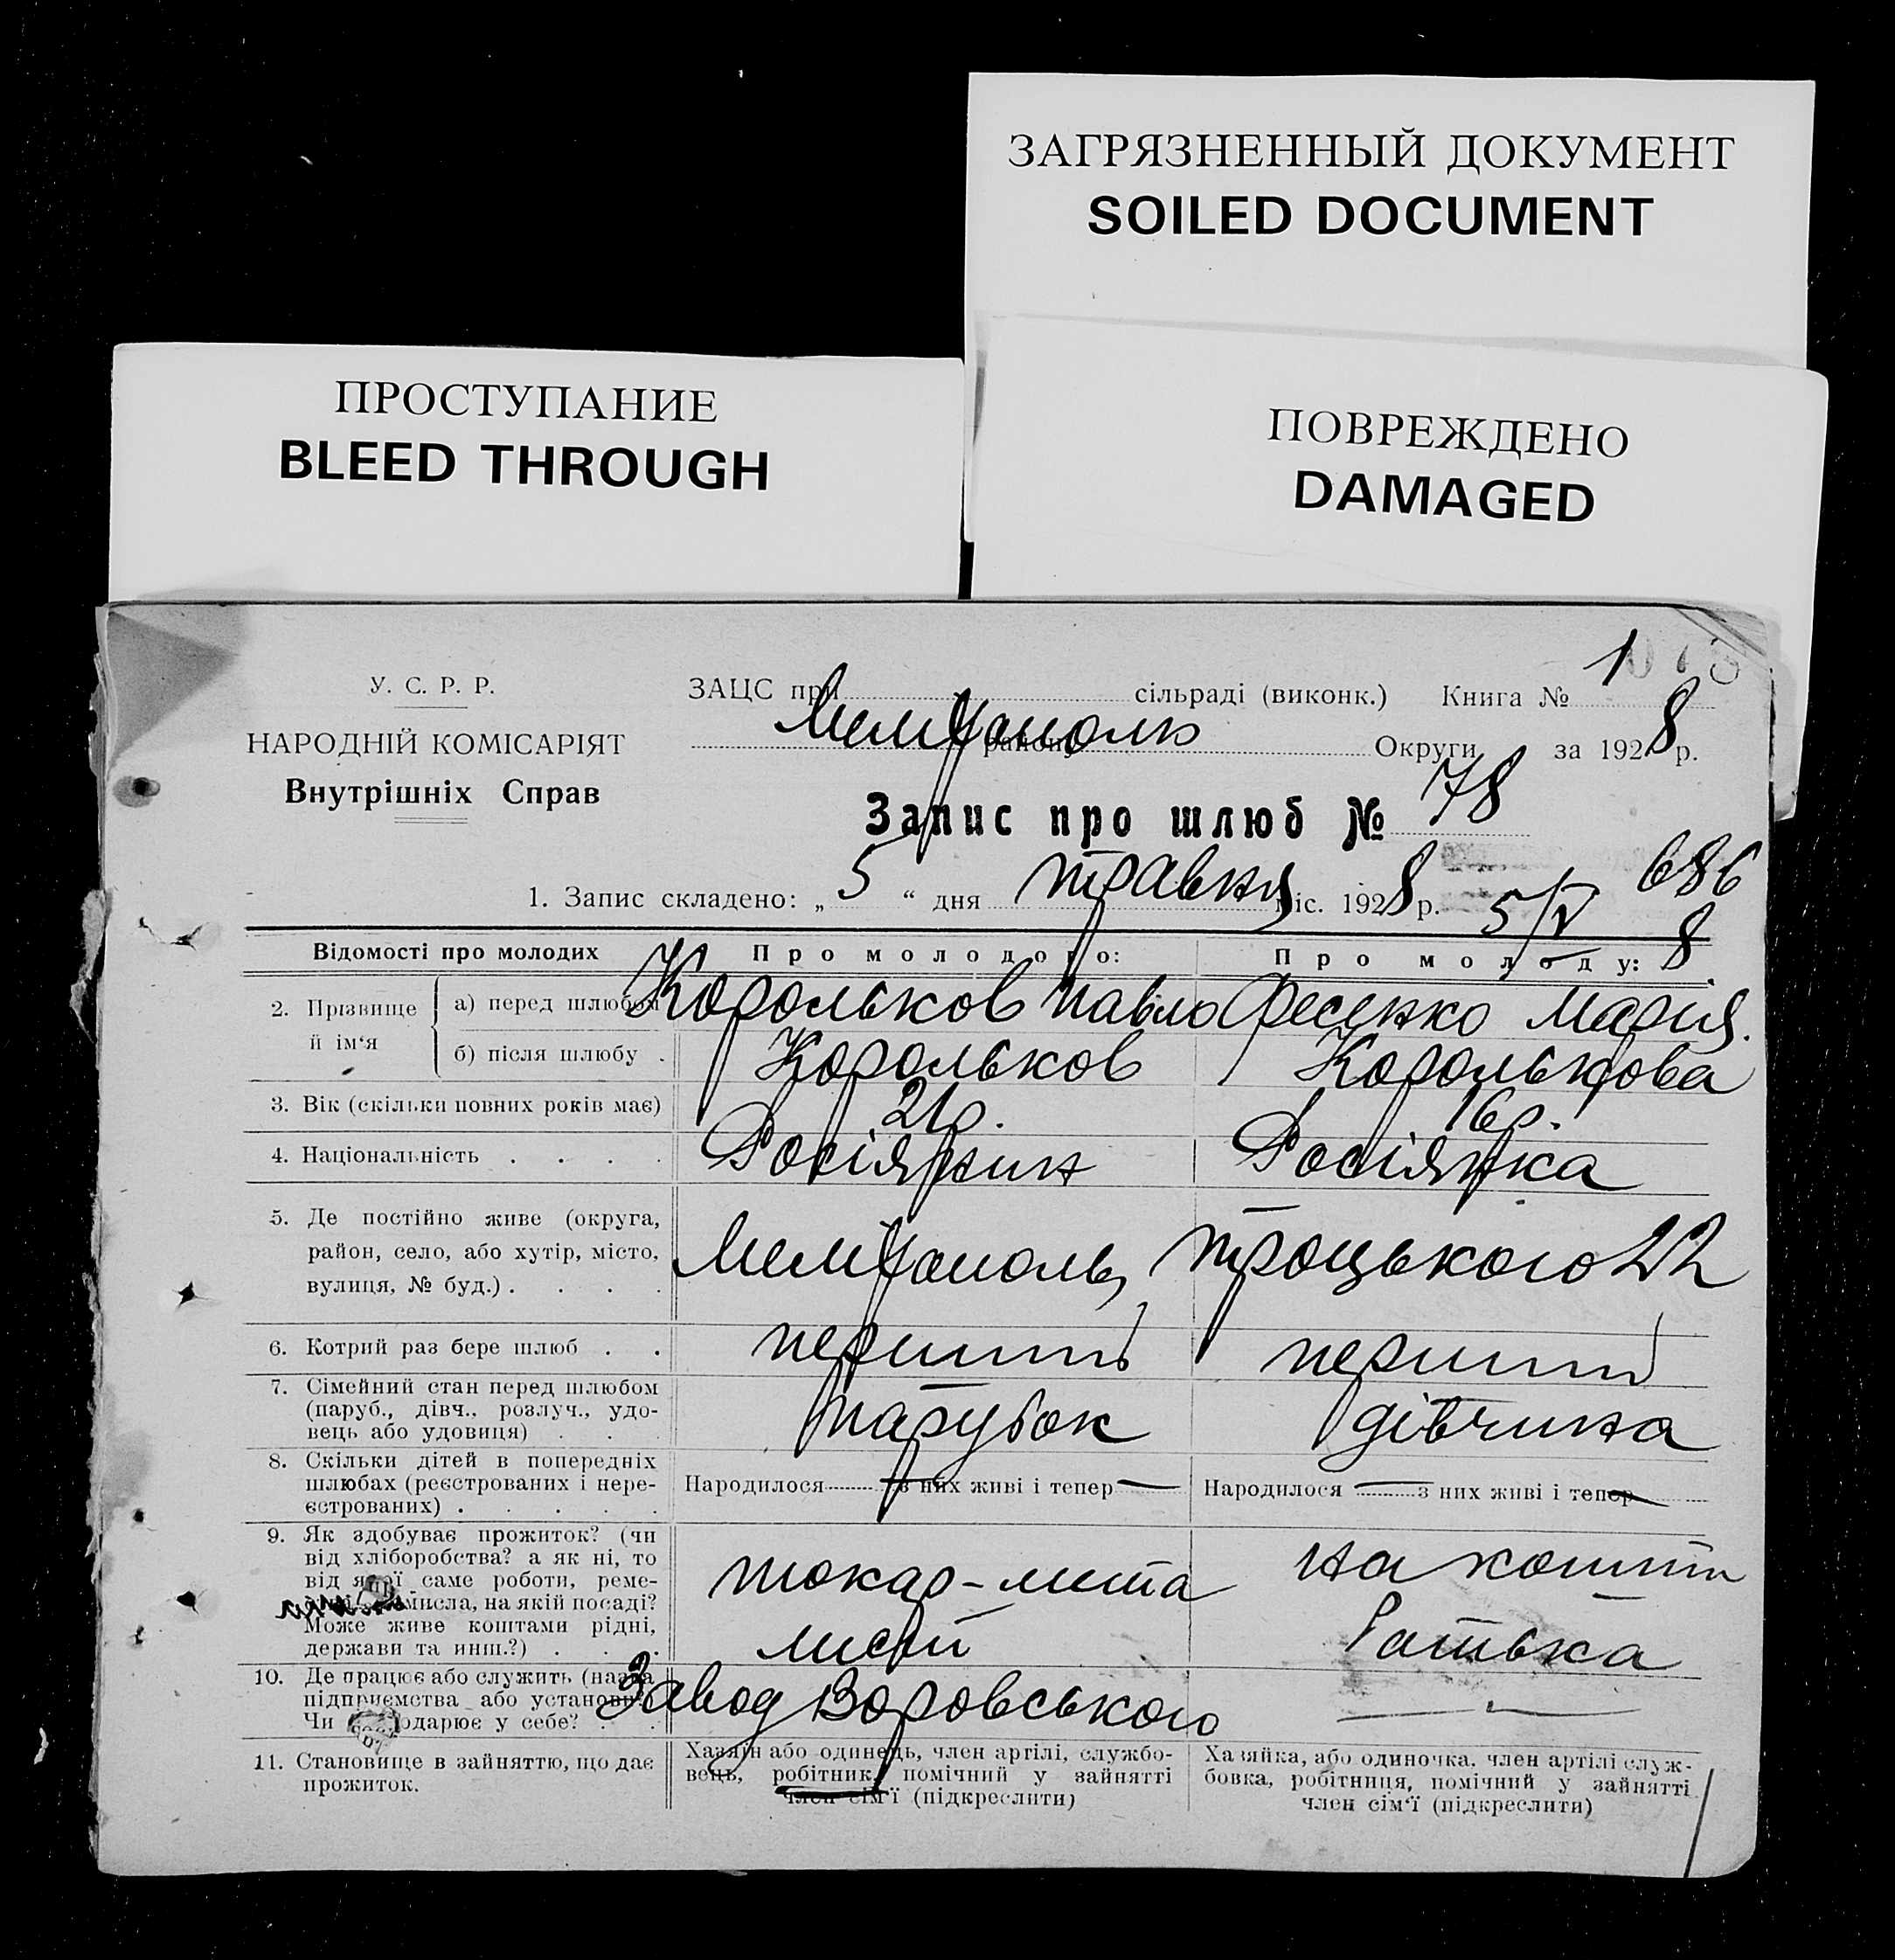 ЗАГРЯЗНЕННЫЙ ДОКУМЕНТ
SOILED DOCUMENT
ПРОСТУПАНИЕ
BLEED THROUGH
ПОВРЕЖДЕНО
DAMAGED
У. С. Р. Р.
НАРОДНІЙ КОМІСАРІЯТ
Внутрішніх Справ
ЗАЦС при сільраді (виконк.) Книга № 1
Мелітополь району Округи за 1928 р.
Запис про шлюб № 78
686
1. Запис складено: „5“ дня травня міс. 1928 р. 5/V 8
Відомості про молодих Про молодого: Про молоду:
2. Прізвище й ім‘я
а) перед шлюбом Корольков Павло Фесенко Мария.
б) після шлюбу . Корольков Королькова
3. Вік (скільки повних років має) 21р. 16р.
4. Національність . . . . Росіянин Росіянка
5. Де постійно живе (округа,
район, село, або хутір, місто,
вулиця, № буд.) . . . . Мелітополь, Троцького 22
6. Котрий раз бере шлюб . . перший перший
7. Сімейний стан перед шлюбом
(паруб., дівч., розлуч., удо-
вець або удовиця) . . парубок дівчина
8. Скільки дітей в попередніх
шлюбах (реєстрованих і нере-
єстрованих) . . . . .
Народилося з них живі і тепер —
Народилося — з них живі і тепер —
9. Як здобуває прожиток? (чи
від хліборобства? а як ні, то
від якої саме роботи, реме-
мисла, на якій посаді?
Може живе коштами рідні,
держави та инш.?) . . .
токар-мета
лист
на кошти
Батька
10. Де працює або служить (назва
підприємства або установи?
Чи господарює у себе? . .
Завод Воровського —
11. Становище в зайняттю, що дає
прожиток.
Хазяїн або одинець, член артілі, службо-
вець, робітник, помічний у зайнятті
член сім‘ї (підкреслити)
Хазяйка, або одиночка, член артілі служ-
бовка, робітниця, помічний у зайнятті
член сім‘ї (підкреслити)